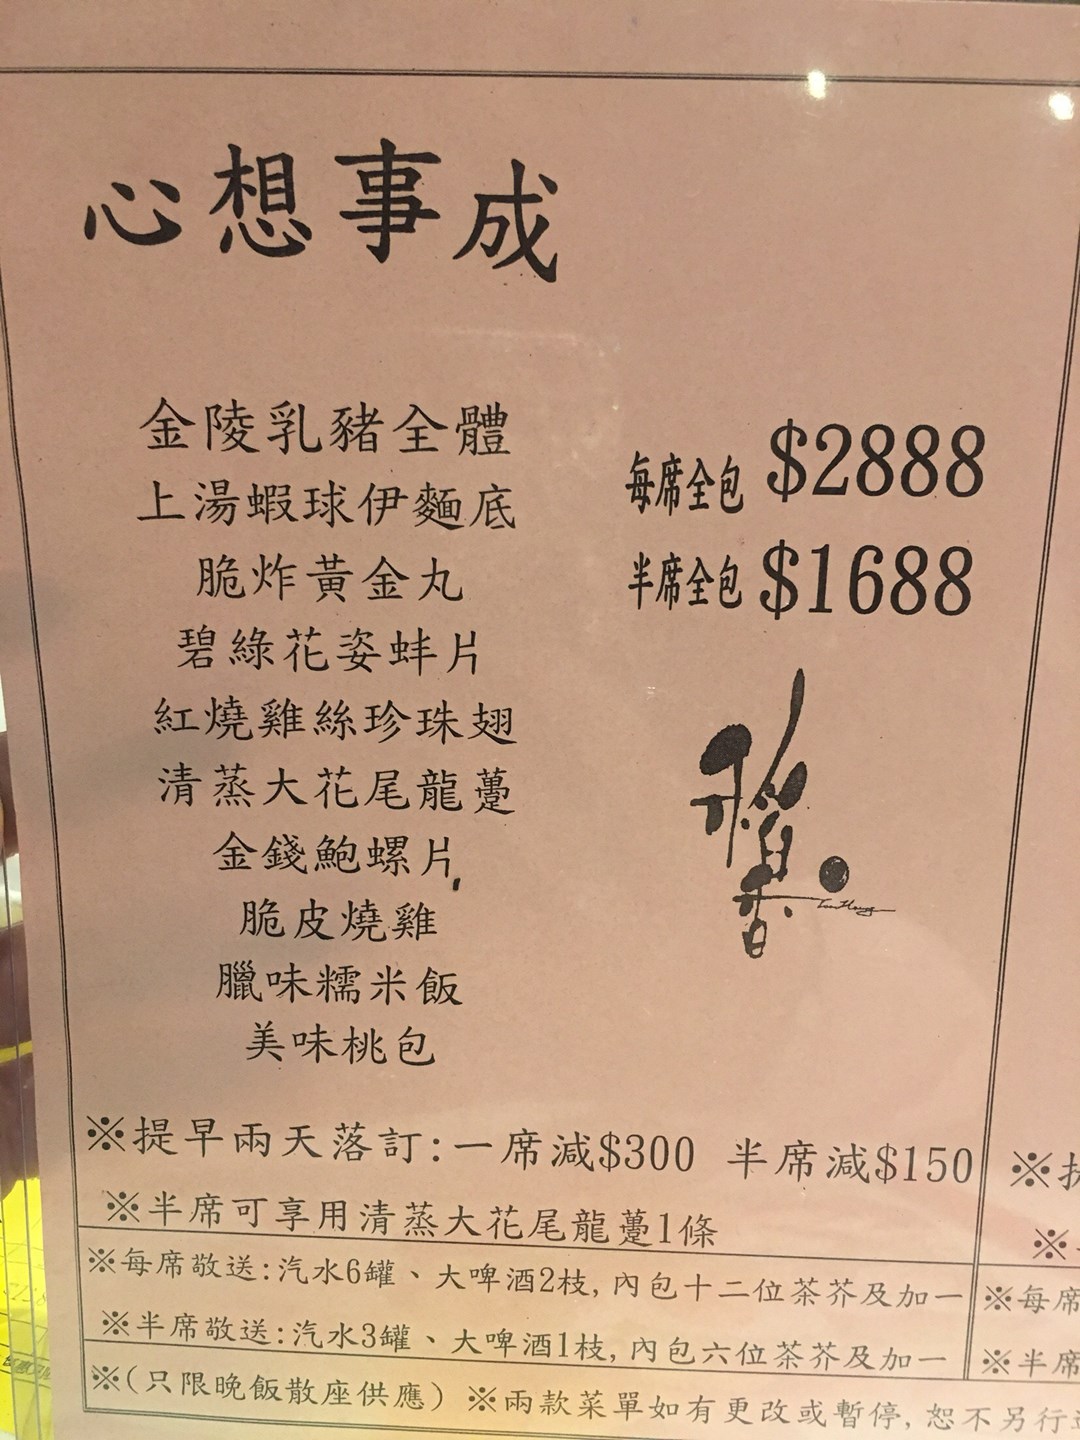 心想事成
金陵乳豬全體
上湯蝦球伊麵底
脆炸黃金丸
碧綠花姿蚌片
紅燒雞絲珍珠翅
清蒸大花尾龍躉
金錢鮑螺片
脆皮燒雞
臘味糯米飯
美味桃包
每席全包 $2888
半席全包 $1688
※提早兩天落訂:一席減$300 半席減$150
※半席可享用清蒸大花尾龍躉1條
※每席敬送:汽水6罐、大啤酒2枝,內包十二位茶芥及加一
※半席敬送:汽水3罐、大啤酒1枝,內包六位茶芥及加一
※(只限晚飯散座供應) ※兩款菜單如有更改或暫停,恕不另行
※
※
※每席
※半席